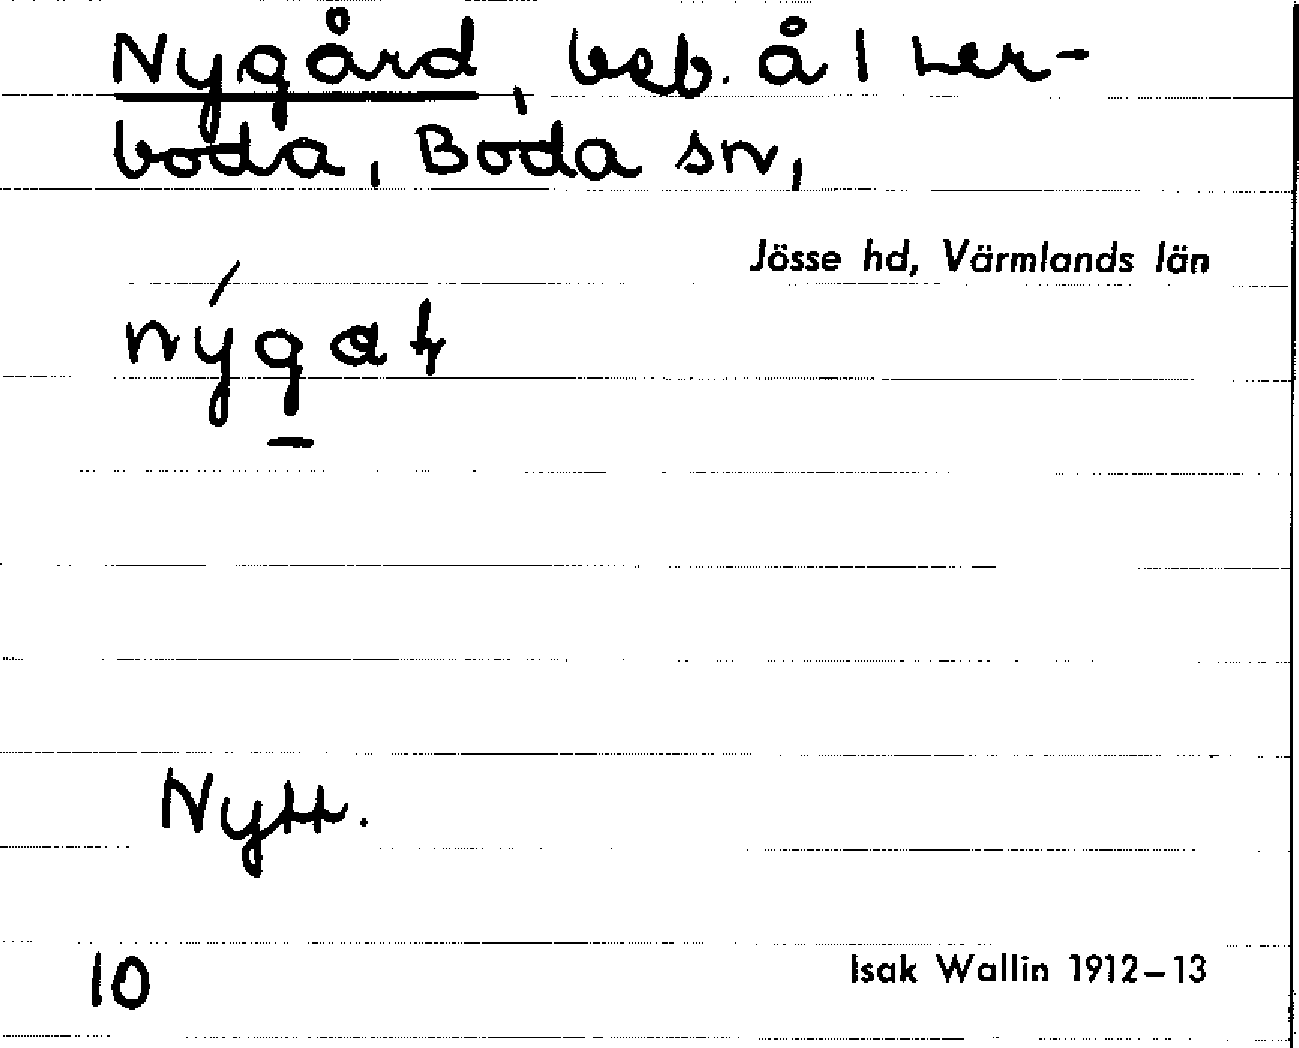 Nygård, beb. å 1 Ler-
boda, Boda sn,
Jösse hd, Värmlands län
Nytt.
10
Isak Wallin 1912–13